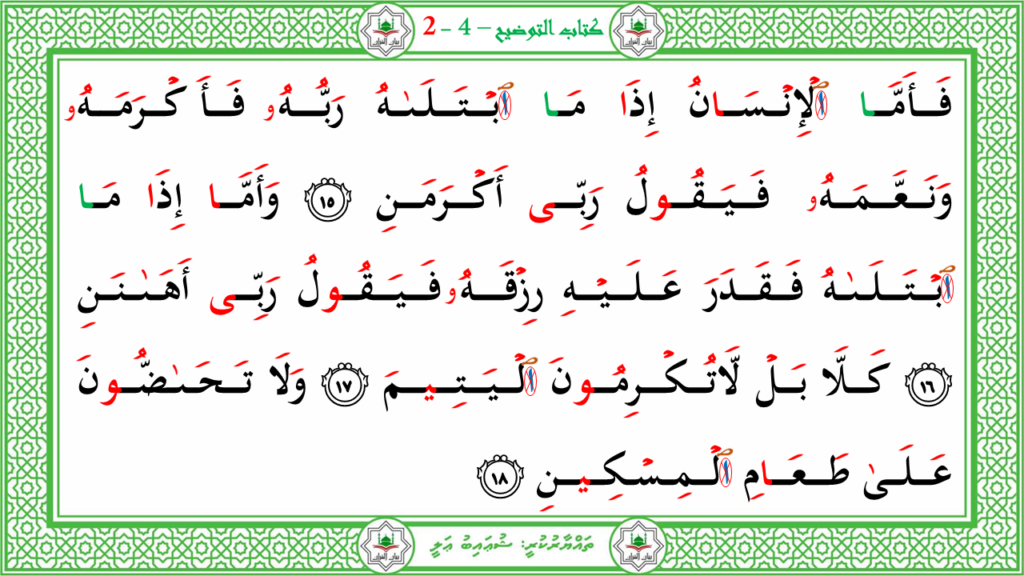 كتاب التوضيح – 4 - 2
فَأَمَّا ٱلْإِنْسَانُ إِذَا مَا ٱبْتَلَىٰهُ رَبُّهُۥ فَأَكْرَمَهُۥ
وَنَعَّمَهُۥ فَيَقُولُ رَبِّى أَكْرَمَنِ ١٥ وَأَمَّا إِذَا مَا
ٱبْتَلَىٰهُ فَقَدَرَ عَلَيْهِ رِزْقَهُۥ فَيَقُولُ رَبِّى أَهَـٰنَنِ
١٦ كَلَّا بَلْ لَّاتُكْرِمُونَ ٱلْيَتِيمَ ١٧ وَلَا تَحَـٰضُّونَ
عَلَىٰ طَعَامِ ٱلْمِسْكِينِ ١٨
ތައްޔާރުކުރީ: ޝުޢައިބު ޢަލީ